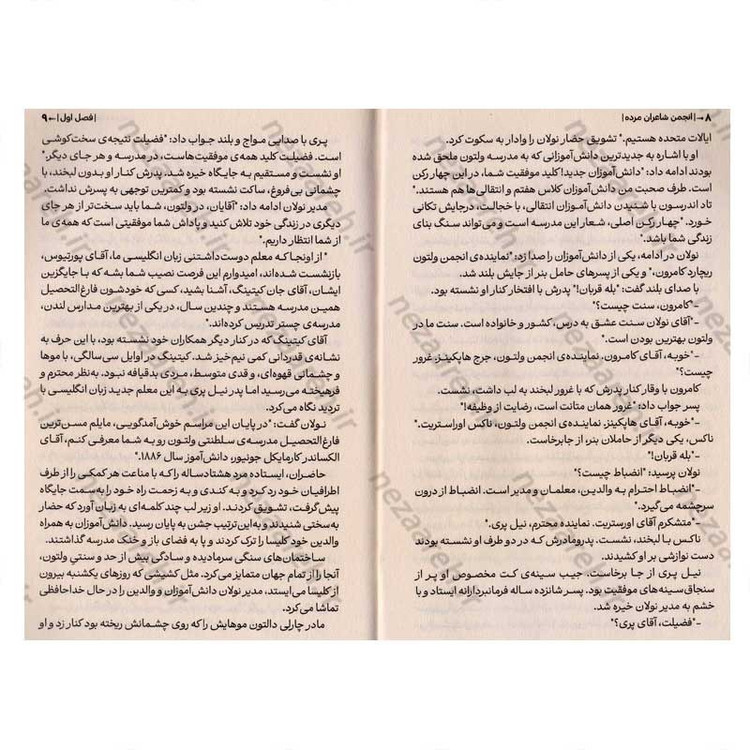 ۸ → | انجمن شاعران مرده |
ایالات متحده هستیم." تشویق حضار نولان را وادار به سکوت کرد.
او با اشاره به جدیدترین دانش‌آموزانی که به مدرسه ولتون ملحق شده
بودند ادامه داد: "دانش‌آموزان جدید! کلید موفقیت شما، در این چهار رکن
است. طرف صحبت من دانش‌آموزان کلاس هفتم و انتقالی‌ها هم هستند."
تاد اندرسون با شنیدن دانش‌آموزان انتقالی، با خجالت، در جایش تکانی
خورد. "چهار رکن اصلی، شعار این مدرسه است و می‌تواند سنگ بنای
زندگی شما باشد."
نولان در ادامه، یکی از دانش‌آموزان را صدا زد: "نماینده‌ی انجمن ولتون
ریچارد کامرون،" و یکی از پسرهای حامل بنر از جایش بلند شد.
با صدای بلند گفت: "بله قربان!" پدرش با افتخار کنار او نشسته بود.
-"کامرون، سنت چیست؟"
-"آقای نولان سنت عشق به درس، کشور و خانواده است. سنت ما در
ولتون بهترین بودن است."
-"خوبه، آقای کامرون. نماینده‌ی انجمن ولتون، جرج هاپکینز. غرور
چیست؟"
کامرون با وقار کنار پدرش که با غرور لبخند به لب داشت، نشست.
پسر جواب داد: "غرور همان متانت است، رضایت از وظیفه!"
-"خوبه، آقای هاپکینز. نماینده‌ی انجمن ولتون، ناکس اوراستریت."
ناکس، یکی دیگر از حاملان بنر، از جا برخاست.
-"بله قربان!"
نولان پرسید: "انضباط چیست؟"
-"انضباط احترام به والدین، معلمان و مدیر است. انضباط از درون
سرچشمه می‌گیرد."
-"متشکرم آقای اورستریت. نماینده محترم، نیل پری."
ناکس با لبخند، نشست. پدرومادرش که در دو طرف او نشسته بودند
دست نوازشی بر او کشیدند.
نیل پری از جا برخاست. جیب سینه‌ی کت مخصوص او پر از
سنجاق سینه‌های موفقیت بود. پسر شانزده ساله فرمانبردارانه ایستاد و با
خشم به مدیر نولان خیره شد.
-"فضیلت، آقای پری؟"
| فصل اول | ← ۹
پری با صدایی مواج و بلند جواب داد: "فضیلت نتیجه‌ی سخت‌کوشی
است. فضیلت کلید همه‌ی موفقیت‌هاست، در مدرسه و هر جای دیگر."
او نشست و مستقیم به جایگاه خیره شد. پدرش کنار او بدون لبخند، با
چشمانی بی‌فروغ، ساکت نشسته بود و کمترین توجهی به پسرش نداشت.
مدیر نولان ادامه داد: "آقایان، در ولتون، شما باید سخت‌تر از هر جای
دیگری در زندگی خود تلاش کنید و پاداش شما موفقیتی است که همه‌ی ما
از شما انتظار داریم."
"از اونجا که معلم دوست‌داشتنی زبان انگلیسی ما، آقای پورتیوس،
بازنشست شده‌اند، امیدوارم این فرصت نصیب شما بشه که با جایگزین
ایشان، آقای جان کیتینگ، آشنا بشید، کسی که خودشون فارغ‌التحصیل
همین مدرسه هستند و چندین سال، در یکی از بهترین مدارس لندن،
مدرسه‌ی چستر تدریس کرده‌اند."
آقای کیتینگ که در کنار دیگر همکاران خود نشسته بود، با این حرف به
نشانه‌ی قدردانی کمی نیم‌خیز شد. کیتینگ در اوایل سی‌سالگی، با موها
و چشمانی قهوه‌ای، و قدی متوسط، مردی بدقیافه نبود. به‌نظر محترم و
فرهیخته می‌رسید اما پدر نیل پری به این معلم جدید زبان انگلیسی با
تردید نگاه می‌کرد.
نولان گفت: "در پایان این مراسم خوش‌آمدگویی، مایلم مسن‌ترین
فارغ‌التحصیل مدرسه‌ی سلطنتی ولتون رو به شما معرفی کنم، آقای
الکساندر کارمایکل جونیور، دانش‌آموز سال ۱۸۸۶."
حاضران، ایستاده مرد هشتادساله را که با مناعت هر کمکی را از طرف
اطرافیان خود رد کرد و به کندی و به زحمت راه خود را به‌سمت جایگاه
پیش گرفت، تشویق کردند. او زیر لب چند کلمه‌ای به زبان آورد که حضار
به‌سختی شنیدند و به این ترتیب جشن به پایان رسید. دانش‌آموزان به همراه
والدین خود کلیسا را ترک کردند و پا به فضای باز و خنک مدرسه گذاشتند.
ساختمان‌های سنگی سرمادیده و سادگی بیش از حد و سنتی ولتون،
آنجا را از تمام جهان متمایز می‌کرد. مثل کشیشی که روزهای یکشنبه بیرون
از کلیسا می‌ایستد، مدیر نولان دانش‌آموزان و والدین را در حال خداحافظی
تماشا می‌کرد.
مادر چارلی دالتون موهایش را که روی چشمانش ریخته بود کنار زد و او